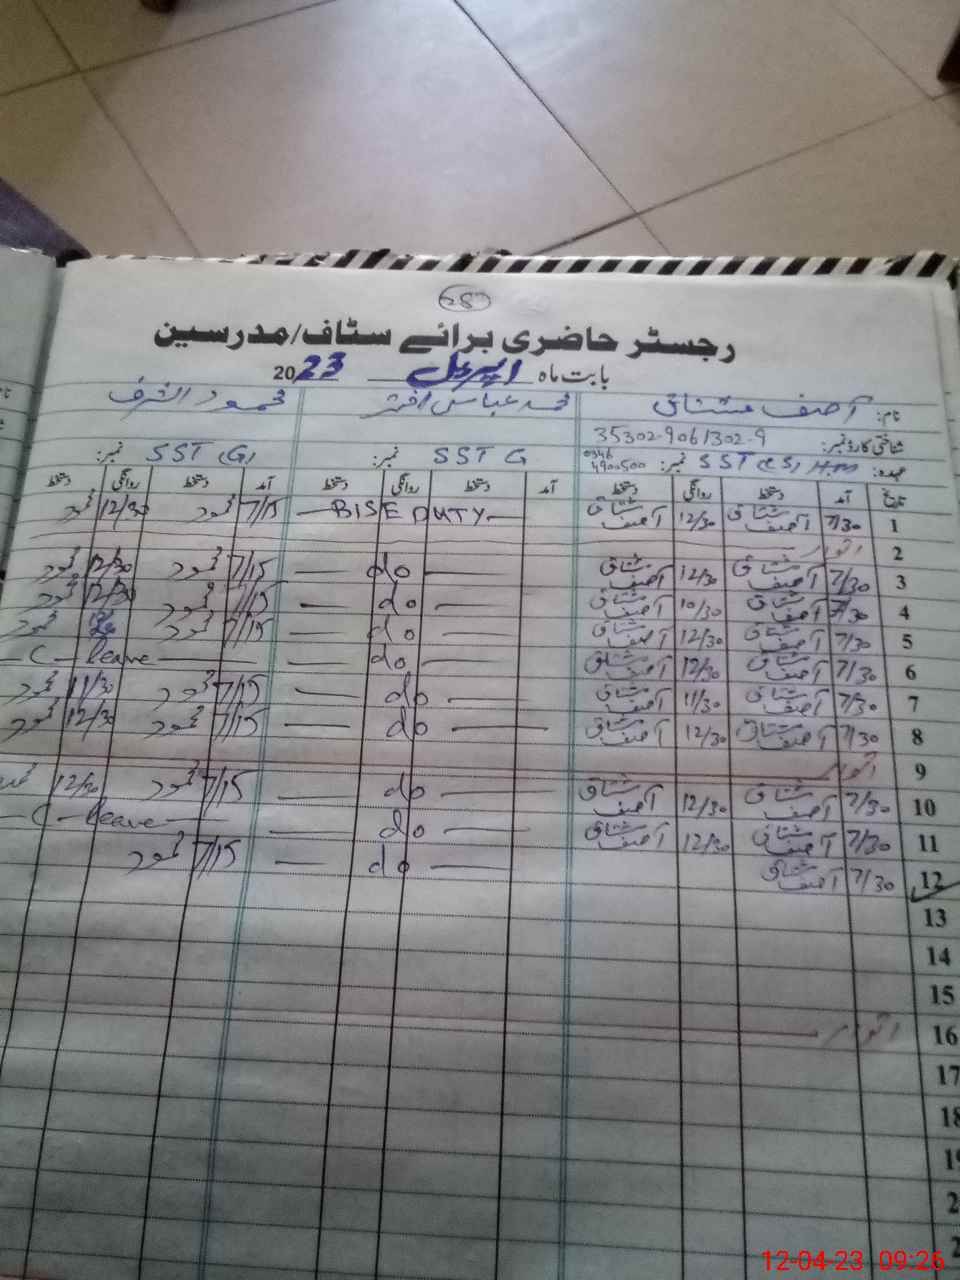 رجسٹر حاضری برائے سٹاف/مدرسین
بابت ماہ اپریل 2023
نام: آصف مشتاق محمد عباس اختر محمود الشرف
شناختی کارڈ نمبر: 35302-9061302-9
عہدہ: SST (S) HM نمبر: 0346 4900500 SST G نمبر: SST (G) نمبر:
تاریخ آمد دستخط روانگی دستخط آمد دستخط روانگی دستخط آمد دستخط روانگی دستخط
1 7/30 آصف مشتاق 12/30 آصف مشتاق BISE DUTY 7/15 محمود 12/30 محمود
2 اتوار
3 7/30 آصف مشتاق 12/30 آصف مشتاق do 7/15 محمود 12/30 محمود
4 7/30 آصف مشتاق 10/30 آصف مشتاق do 7/15 محمود 12/30 محمود
5 7/30 آصف مشتاق 12/30 آصف مشتاق do 7/15 محمود محمود
6 7/30 آصف مشتاق 12/30 آصف مشتاق do C-leave
7 7/30 آصف مشتاق 11/30 آصف مشتاق do 7/15 محمود 11/30 محمود
8 7/30 آصف مشتاق 12/30 آصف مشتاق do 7/15 محمود 12/30 محمود
9 اتوار
10 7/30 آصف مشتاق 12/30 آصف مشتاق do 7/15 محمود 12/30
11 7/30 آصف مشتاق 12/30 آصف مشتاق do C-leave
12 7/30 آصف مشتاق do 7/15 محمود
13
14
15
16 اتوار
17
18
12-04-23 09:26